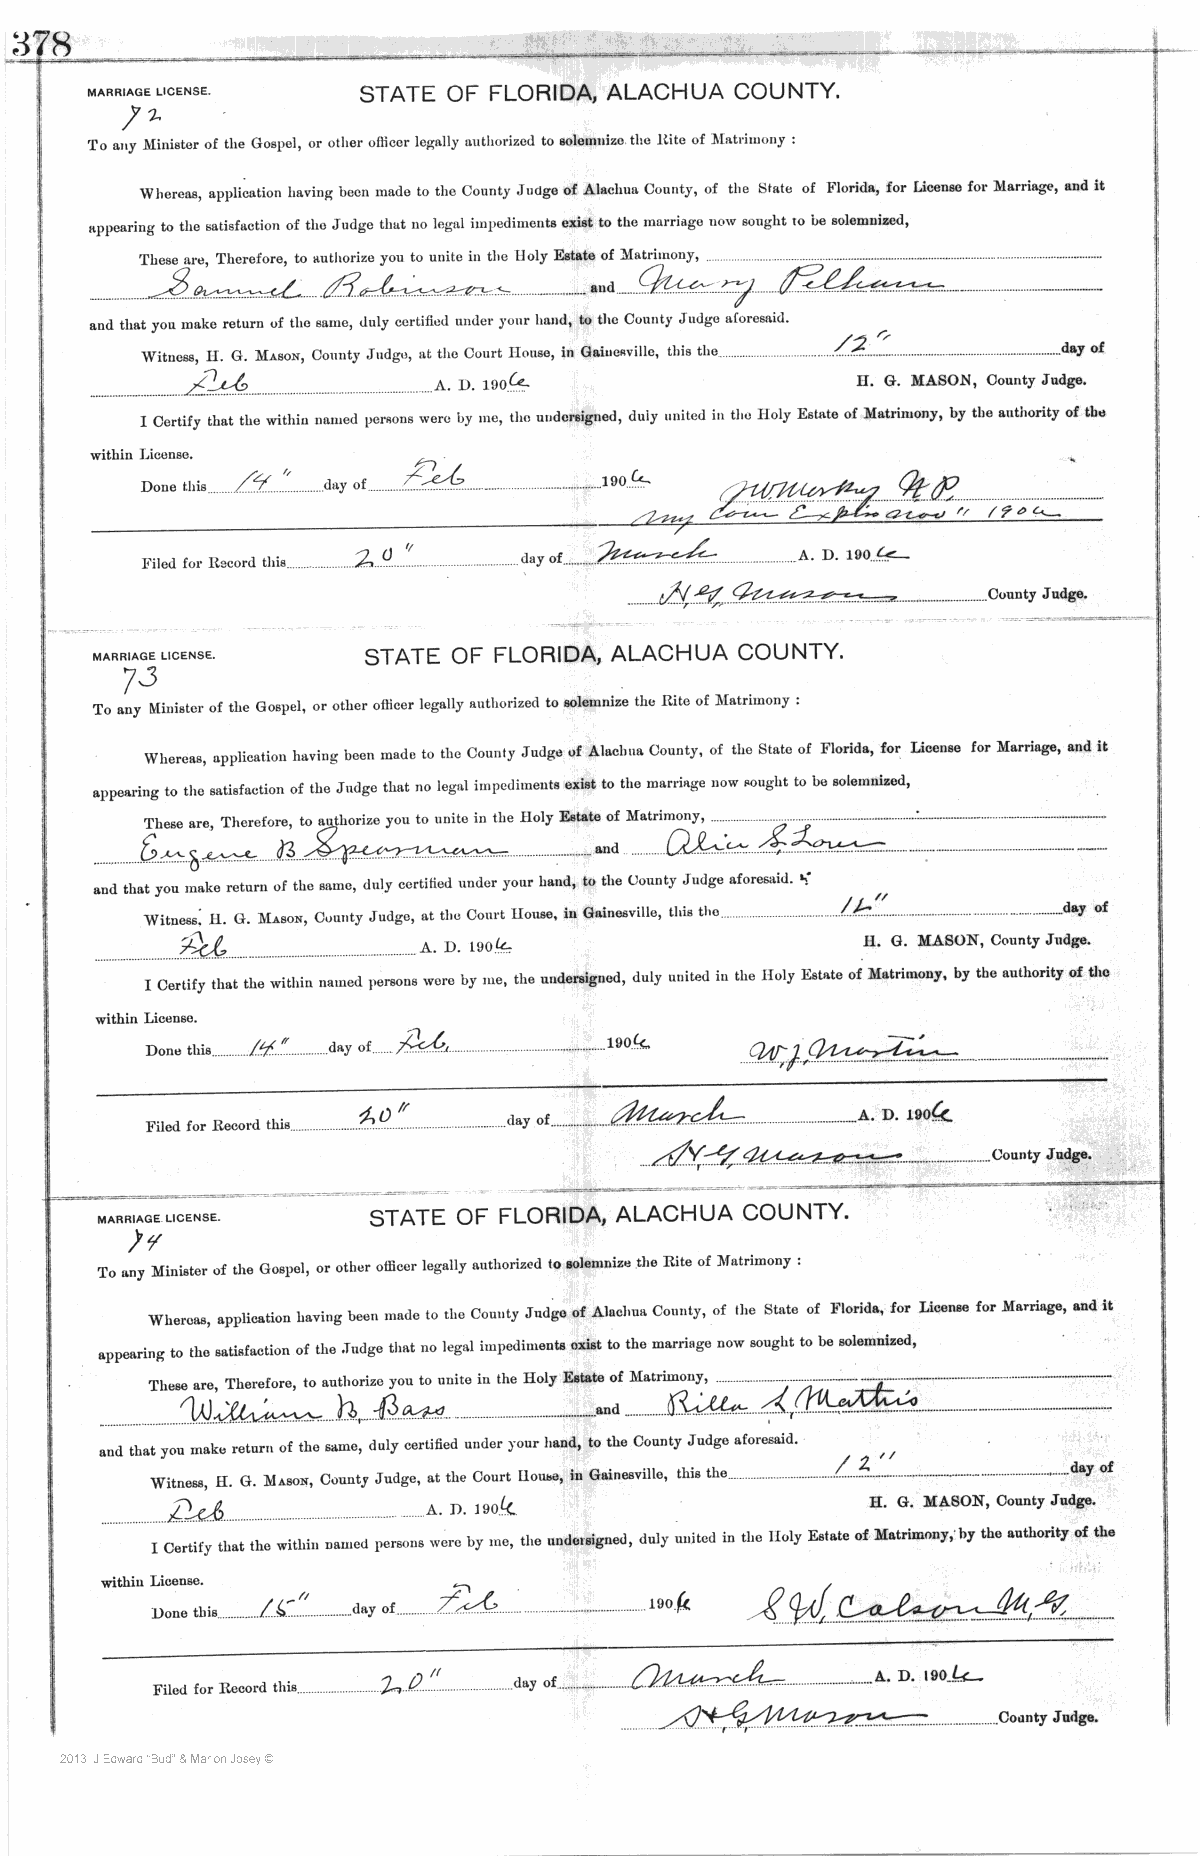 378
MARRIAGE LICENSE. STATE OF FLORIDA, ALACHUA COUNTY.
72
To any Minister of the Gospel, or other officer legally authorized to solemnize the Rite of Matrimony :
Whereas, application having been made to the County Judge of Alachua County, of the State of Florida, for License for Marriage, and it
appearing to the satisfaction of the Judge that no legal impediments exist to the marriage now sought to be solemnized,
These are, Therefore, to authorize you to unite in the Holy Estate of Matrimony,
Samuel Robinson and Mary Pelham
and that you make return of the same, duly certified under your hand, to the County Judge aforesaid.
Witness, H. G. MASON, County Judge, at the Court House, in Gainesville, this the 12" day of
Feb A. D. 1906 H. G. MASON, County Judge.
I Certify that the within named persons were by me, the undersigned, duly united in the Holy Estate of Matrimony, by the authority of the
within License.
Done this 14" day of Feb 1906 N.P.
My Com Expires Nov 1906
Filed for Record this 20" day of March A. D. 1906
H. G. Mason County Judge.
MARRIAGE LICENSE. STATE OF FLORIDA, ALACHUA COUNTY.
73
To any Minister of the Gospel, or other officer legally authorized to solemnize the Rite of Matrimony :
Whereas, application having been made to the County Judge of Alachua County, of the State of Florida, for License for Marriage, and it
appearing to the satisfaction of the Judge that no legal impediments exist to the marriage now sought to be solemnized,
These are, Therefore, to authorize you to unite in the Holy Estate of Matrimony,
Eugene B Spearman and Alice S.
and that you make return of the same, duly certified under your hand, to the County Judge aforesaid.
Witness, H. G. MASON, County Judge, at the Court House, in Gainesville, this the 12" day of
Feb A. D. 1906 H. G. MASON, County Judge.
I Certify that the within named persons were by me, the undersigned, duly united in the Holy Estate of Matrimony, by the authority of the
within License.
Done this 14" day of Feb, 1906 W. J. Martin
Filed for Record this 20" day of March A. D. 1906
H. G. Mason County Judge.
MARRIAGE LICENSE. STATE OF FLORIDA, ALACHUA COUNTY.
74
To any Minister of the Gospel, or other officer legally authorized to solemnize the Rite of Matrimony :
Whereas, application having been made to the County Judge of Alachua County, of the State of Florida, for License for Marriage, and it
appearing to the satisfaction of the Judge that no legal impediments exist to the marriage now sought to be solemnized,
These are, Therefore, to authorize you to unite in the Holy Estate of Matrimony,
William B. Bass and Rilla L. Mathis
and that you make return of the same, duly certified under your hand, to the County Judge aforesaid.
Witness, H. G. MASON, County Judge, at the Court House, in Gainesville, this the 12" day of
Feb A. D. 1906 H. G. MASON, County Judge.
I Certify that the within named persons were by me, the undersigned, duly united in the Holy Estate of Matrimony, by the authority of the
within License.
Done this 15" day of Feb 1906 S W. Colson M.G.
Filed for Record this 20" day of March A. D. 1906
H. G. Mason County Judge.
2013 J Edward "Bud" & Marion Josey ©